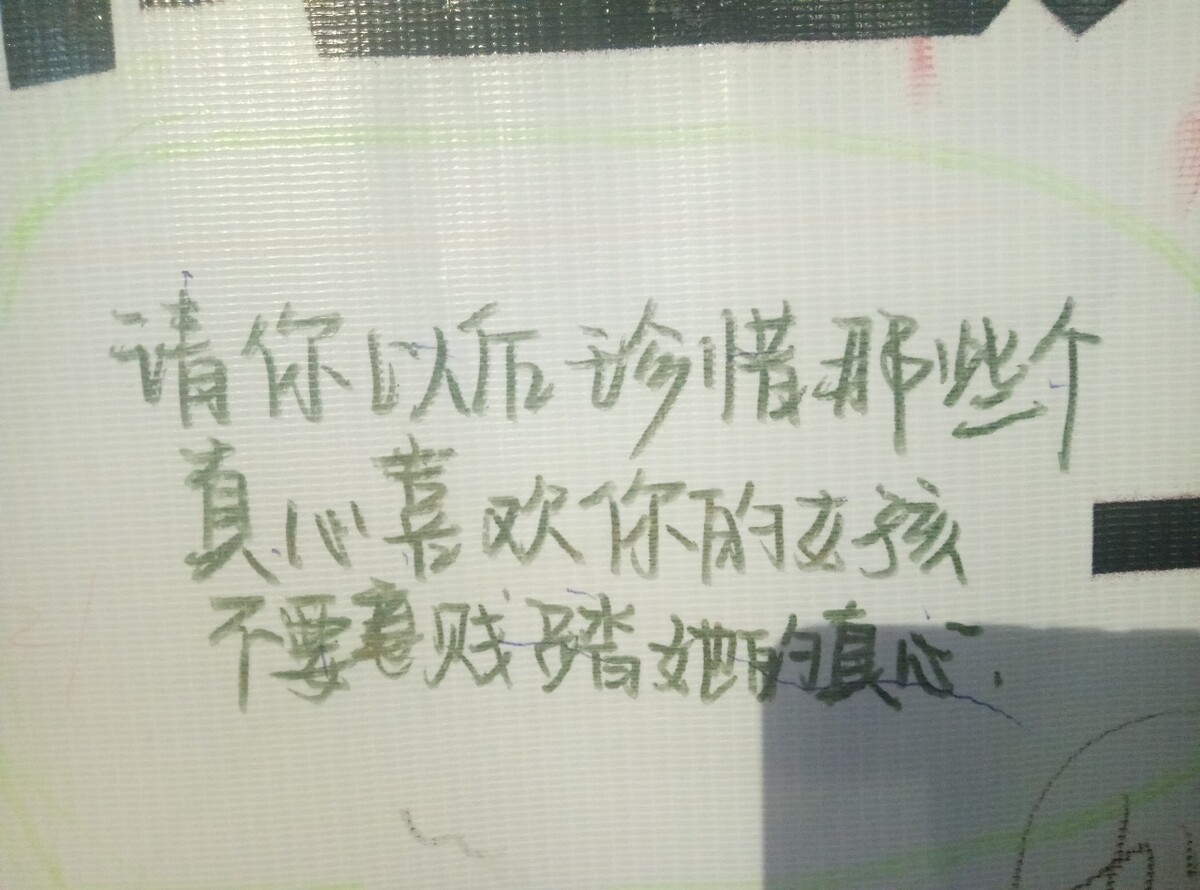 请你以后珍惜那些个
真心喜欢你的女孩
不要贱踏她的真心.